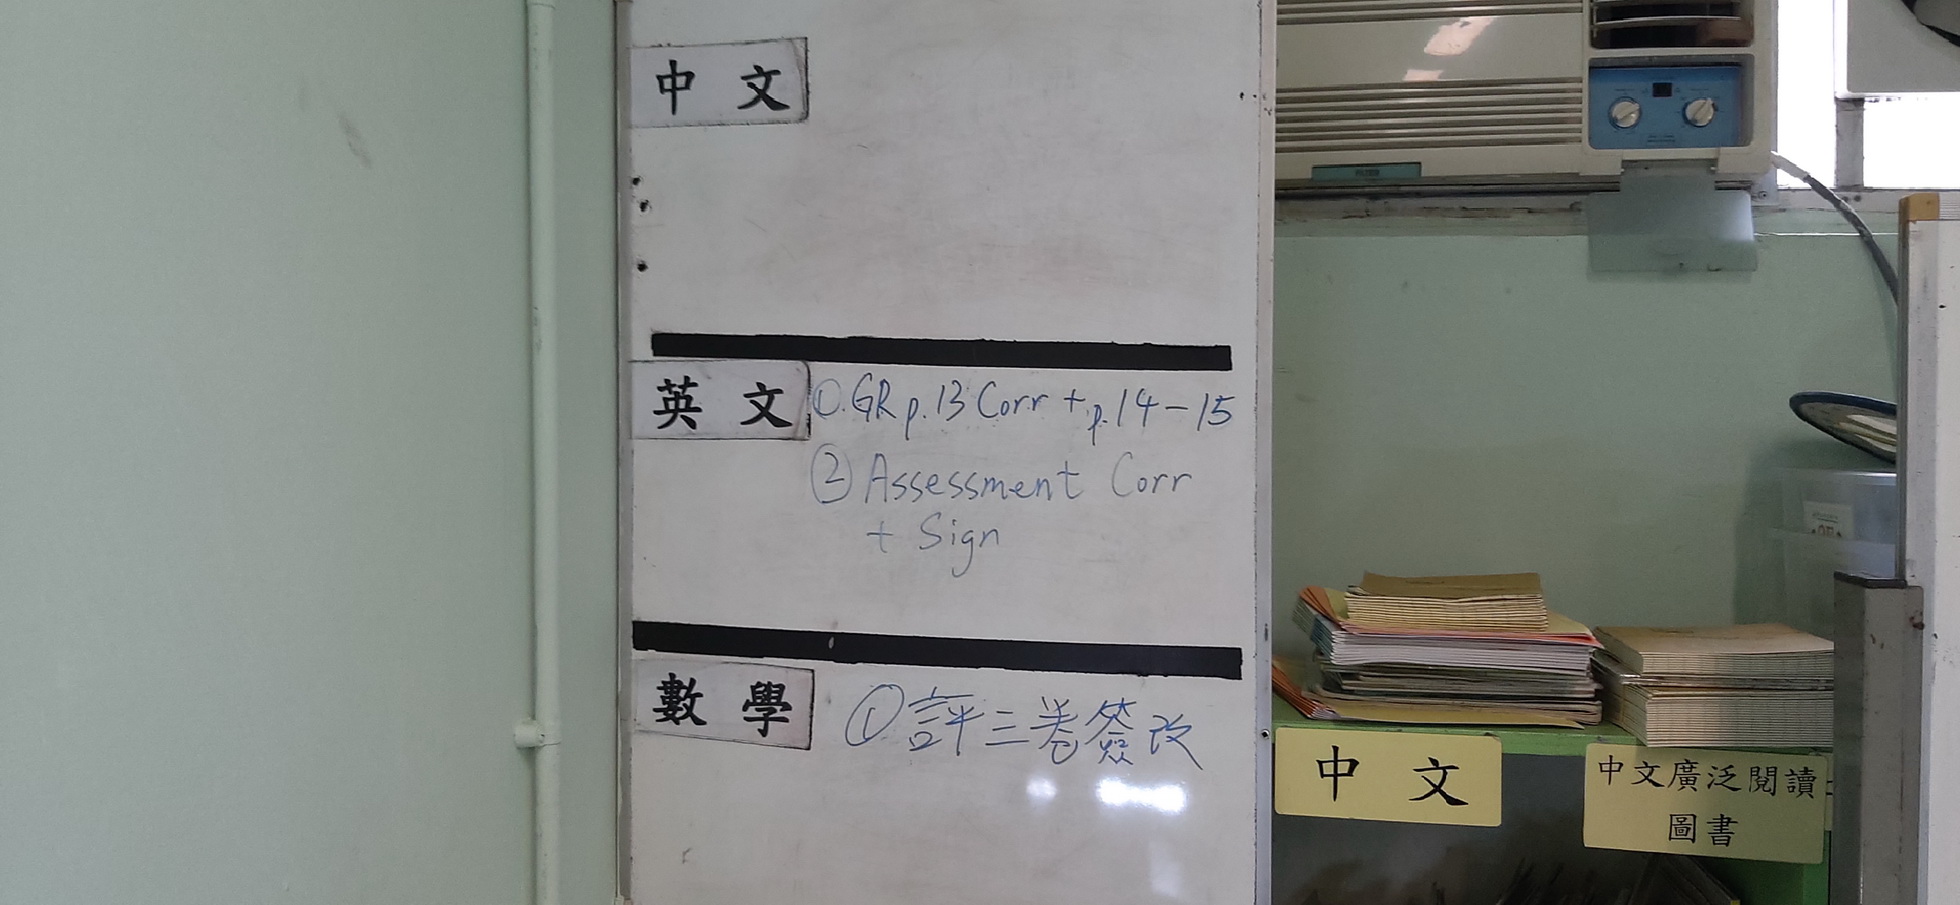 中文
英文 ①.GR p.13 Corr + p.14-15
② Assessment Corr
+ Sign
數學 ①評三卷簽改
中文
中文廣泛閱讀
圖書